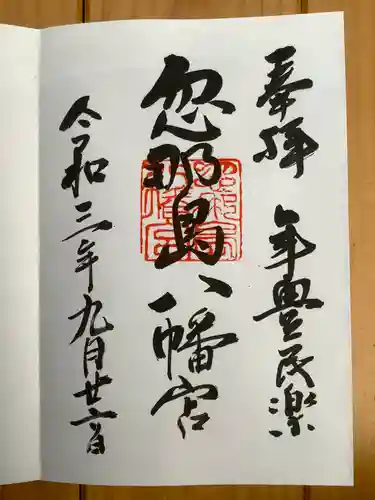 奉拝 年豊民楽
忽那島八幡宮
令和三年九月廿六日